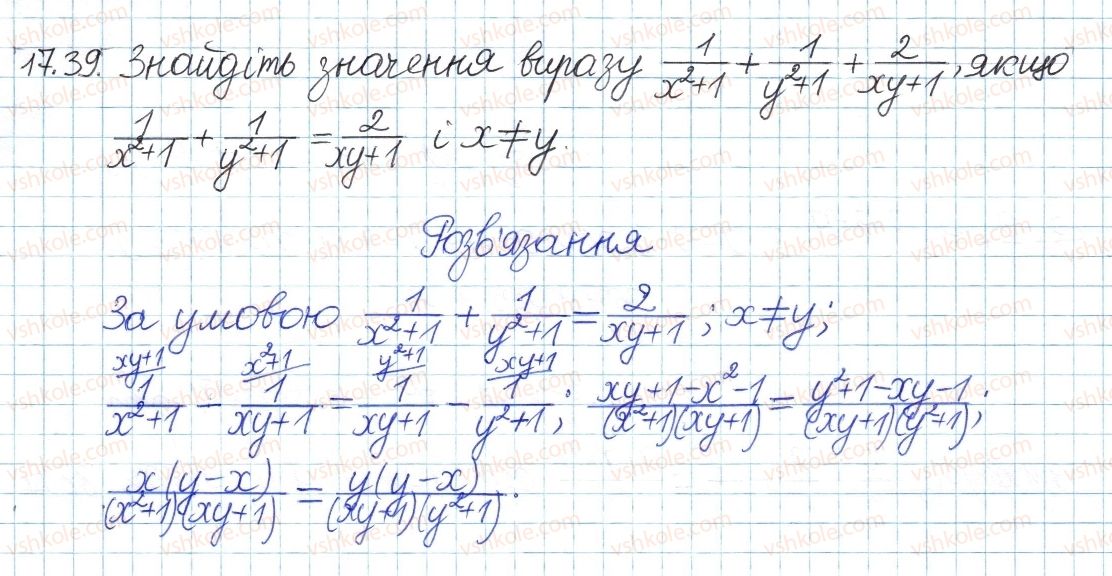 17.39. Знайдіть значення виразу 1/(x²+1) + 1/(y²+1) + 2/(xy+1), якщо
1/(x²+1) + 1/(y²+1) = 2/(xy+1) і x≠y.
Розв'язання
За умовою 1/(x²+1) + 1/(y²+1) = 2/(xy+1); x≠y;
xy+1/ 1/(x²+1) − x²+1/ 1/(xy+1) = y²+1/ 1/(xy+1) − xy+1/ 1/(y²+1); (xy+1−x²−1)/((x²+1)(xy+1)) = (y²+1−xy−1)/((xy+1)(y²+1));
x(y−x)/((x²+1)(xy+1)) = y(y−x)/((xy+1)(y²+1)).